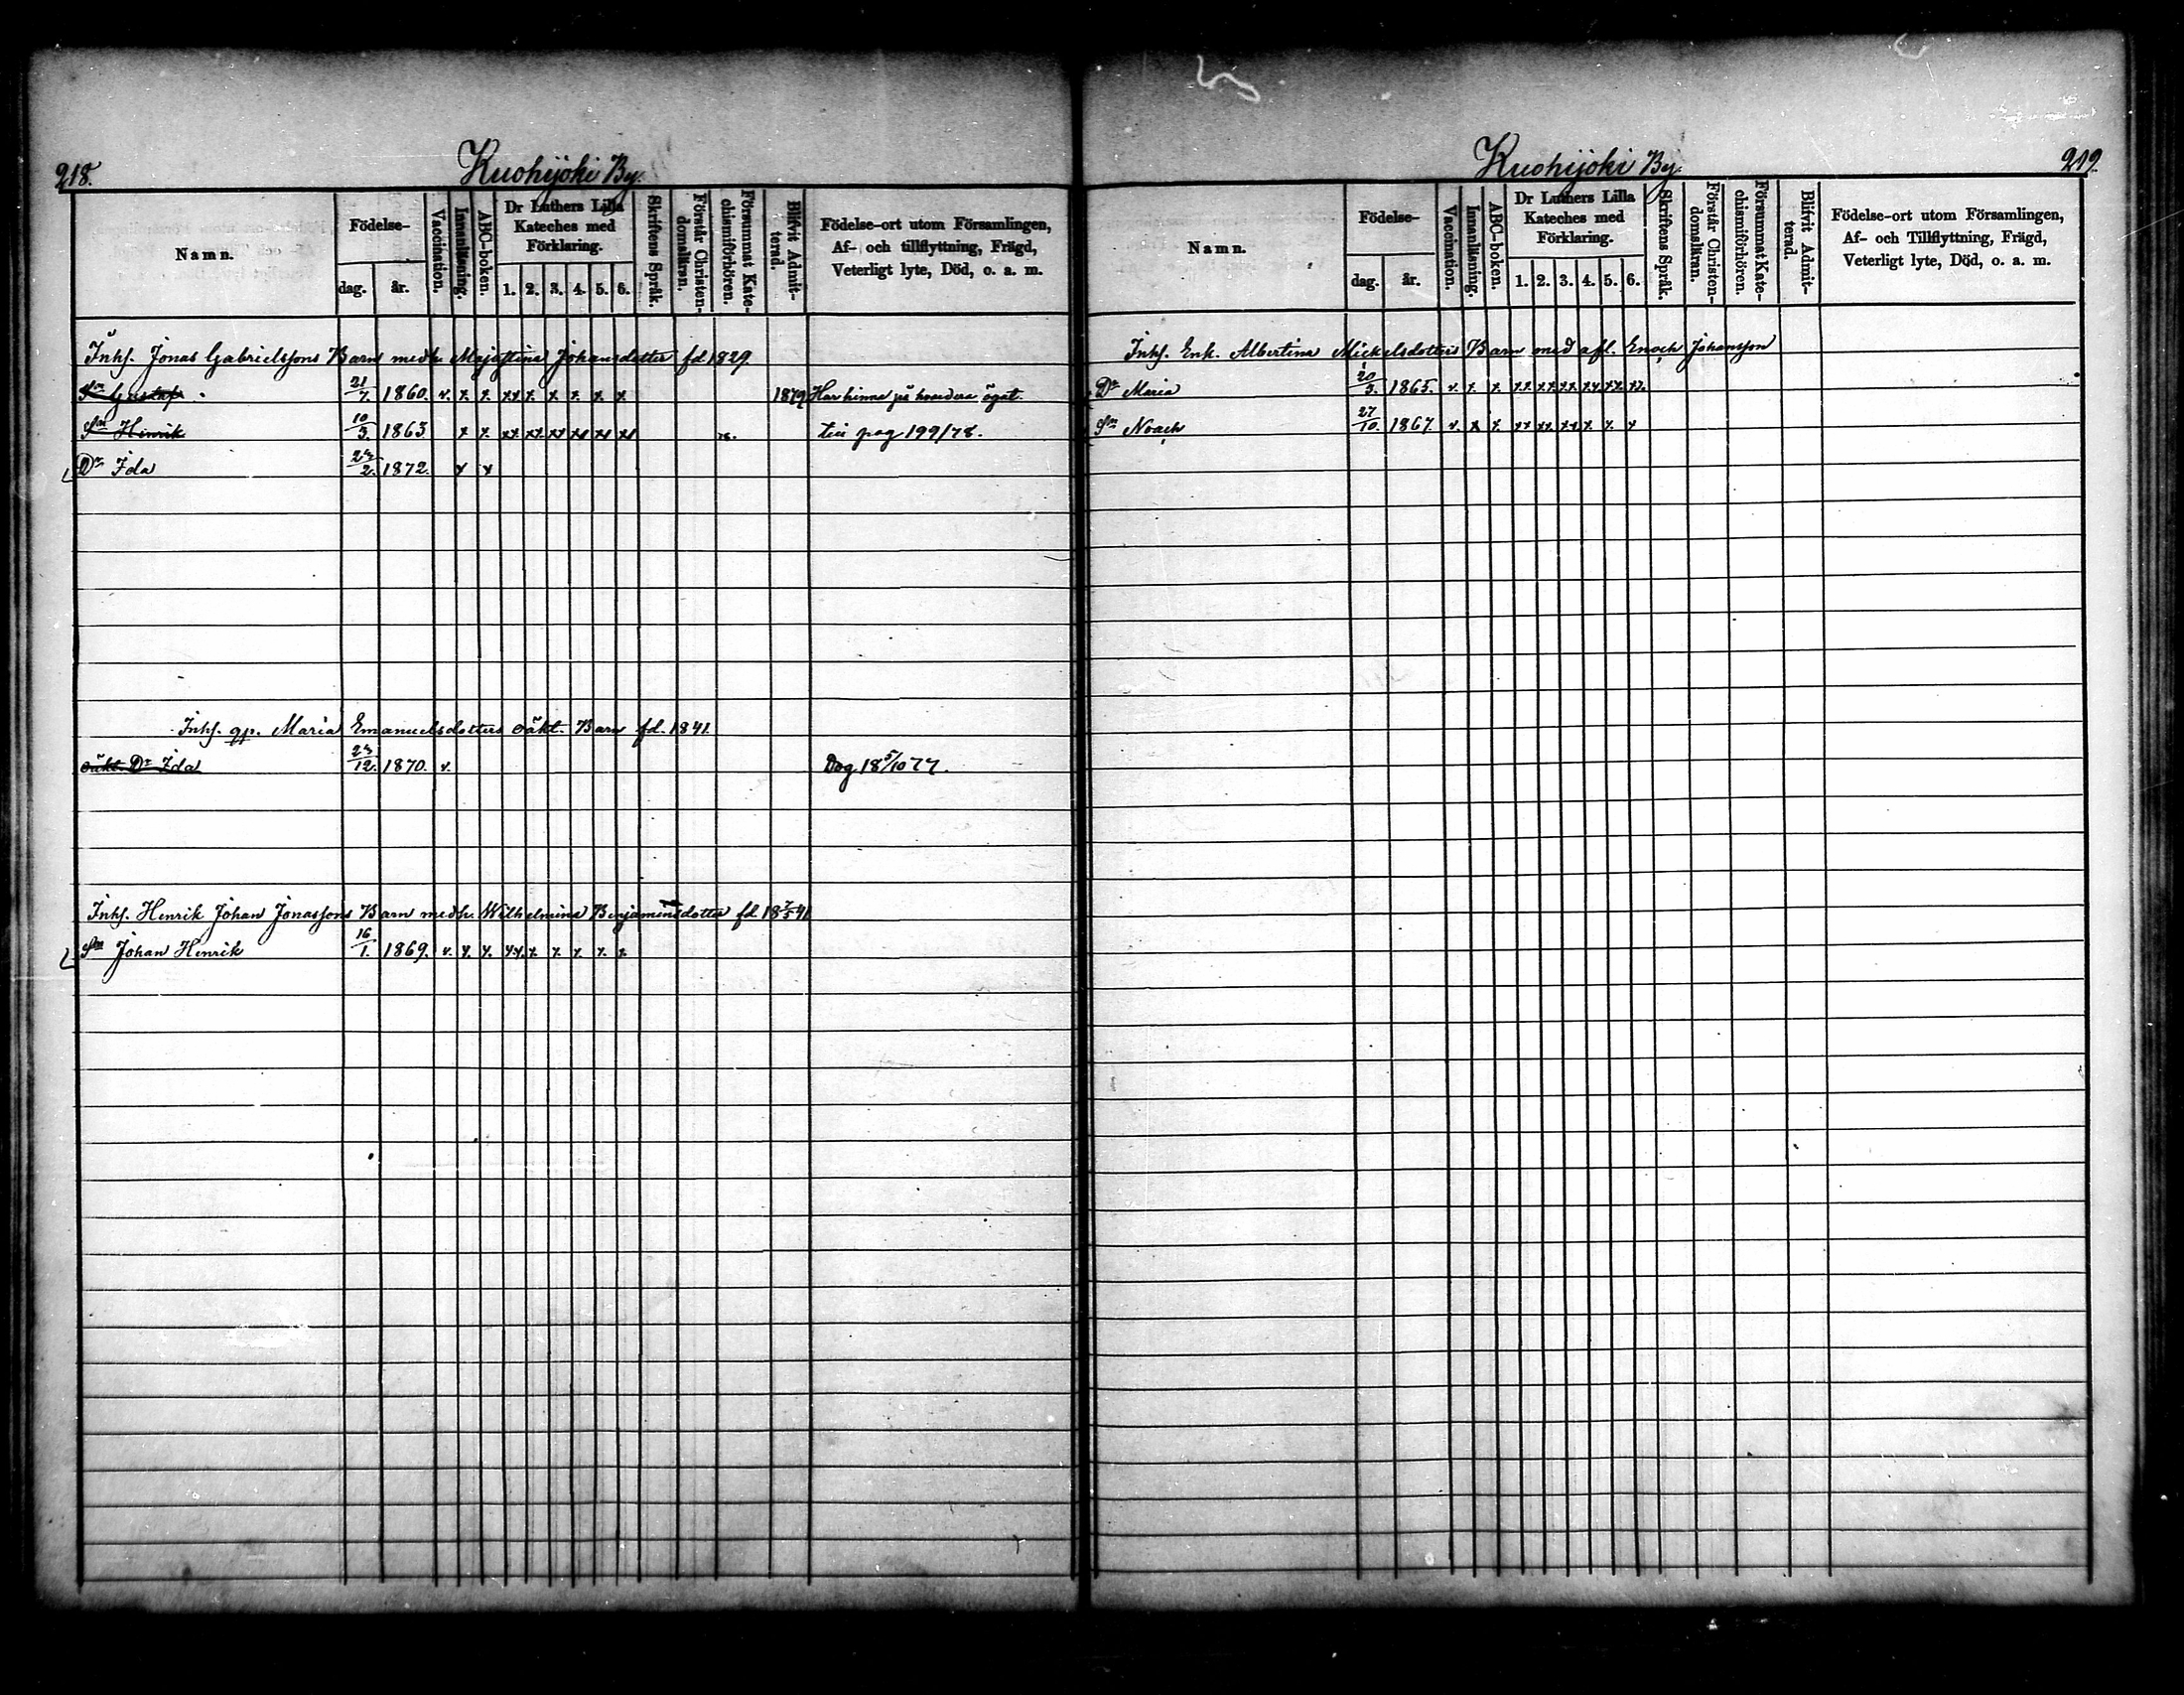 218.
Kuohijoki By.
Namn.
Födelse-
dag.
år.
Vaccination.
Innanläsning.
ABC-boken.
Dr Luthers Lilla
Kateches med
Förklaring.
1. 2. 3. 4. 5. 6.
Skriftens Språk.
Förstår Christen-
domsläran.
Försummat Kate-
chismiförhören.
Blifvit Admit-
terad.
Födelse-ort utom Församlingen,
Af- och tillflyttning, Frägd,
Veterligt lyte, Död, o. a. m.
Inhs. Jonas Gabrielssons Barn medh. Maja Stina Johansdotter fd 1829.
Sn Gustaf 21/7. 1860. v. x. x. xx x. x. x. x. x. 1879 Har hinna på ögat.
Sn Henrik 10/3. 1863 x x. xx. xx. xx xx xx xx n. pag 199/78.
Dr Ida 2. 1872. x x
Inhs. qp. Maria Emanuelsdotters oäkt. Barn fd. 1841.
oäkt. Dr Ida 12. 1870. v. Dog 18 5/10 77.
Inhs. Henrik Johan Jonassons Barn medh. Wilhelmina Benjaminsdotter fd 18 7/5 41
Sn Johan Henrik 16/1. 1869. v. x. x. xx. x. x. x. x. x.
219.
Kuohijoki By.
Namn.
Födelse-
dag.
år.
Vaccination.
Innanläsning.
ABC-boken.
Dr Luthers Lilla
Kateches med
Förklaring.
1. 2. 3. 4. 5. 6.
Skriftens Språk.
Förstår Christen-
domsläran.
Försummat Kate-
chismiförhören.
Blifvit Admit-
terad.
Födelse-ort utom Församlingen,
Af- och Tillflyttning, Frägd,
Veterligt lyte, Död, o. a. m.
Inhs. Enk. Albertina Mickelsdotters Barn med afl. Enoch Johansson
Dr Maria 20/3. 1865. v. x. x. xx. xx. xx. xx. xx. xx.
Sn Noach 27/10. 1867. v. x x. xx xx. xx x. x. x